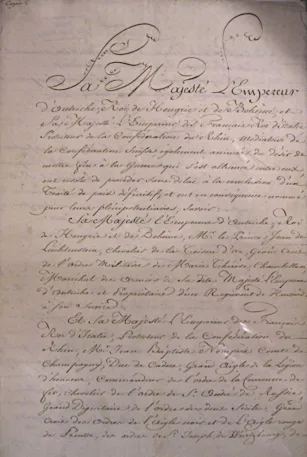 Sa Majesté L'Empereur
d'Autriche, Roi de Hongrie et de Bohême, et
Sa Majesté L'Empereur des Français, Roi d'Italie,
Protecteur de la Confédération du Rhin, Médiateur de
la Confédération Suisse également animés du désir de
mettre fin à la Guerre qui s'est allumée entre eux,
ont résolu de procéder sans délai à la conclusion d'un
Traité de paix définitif, et ont en conséquence nommé
pour leurs plénipotentiaires, savoir:
Sa Majesté L'Empereur d'Autriche, Roi
de Hongrie et de Bohême, Mr. le Prince Jean de
Liechtenstein, Chevalier de la Toison d'or, Grand Croix
de l'ordre Militaire de Marie Thérèse, Chambellan,
Maréchal des armées de Sa dite Majesté L'Empereur
d'Autriche et Propriétaire d'un Régiment de Hussards
à son Service.
Et Sa Majesté L'Empereur des Français,
Roi d'Italie, Protecteur de la Confédération du
Rhin, Mr. Jean Baptiste Nompère Comte de
Champagny, Duc de Cadore, Grand Aigle de la Légion
d'honneur, Commandeur de l'ordre de la Couronne de
fer, Chevalier de l'ordre de St. André de Russie,
Grand Dignitaire de l'ordre des deux Siciles, Grand
Croix des ordres de l'Aigle noir et de l'Aigle rouge
de Prusse, des ordres de St. Joseph de Würzbourg, de